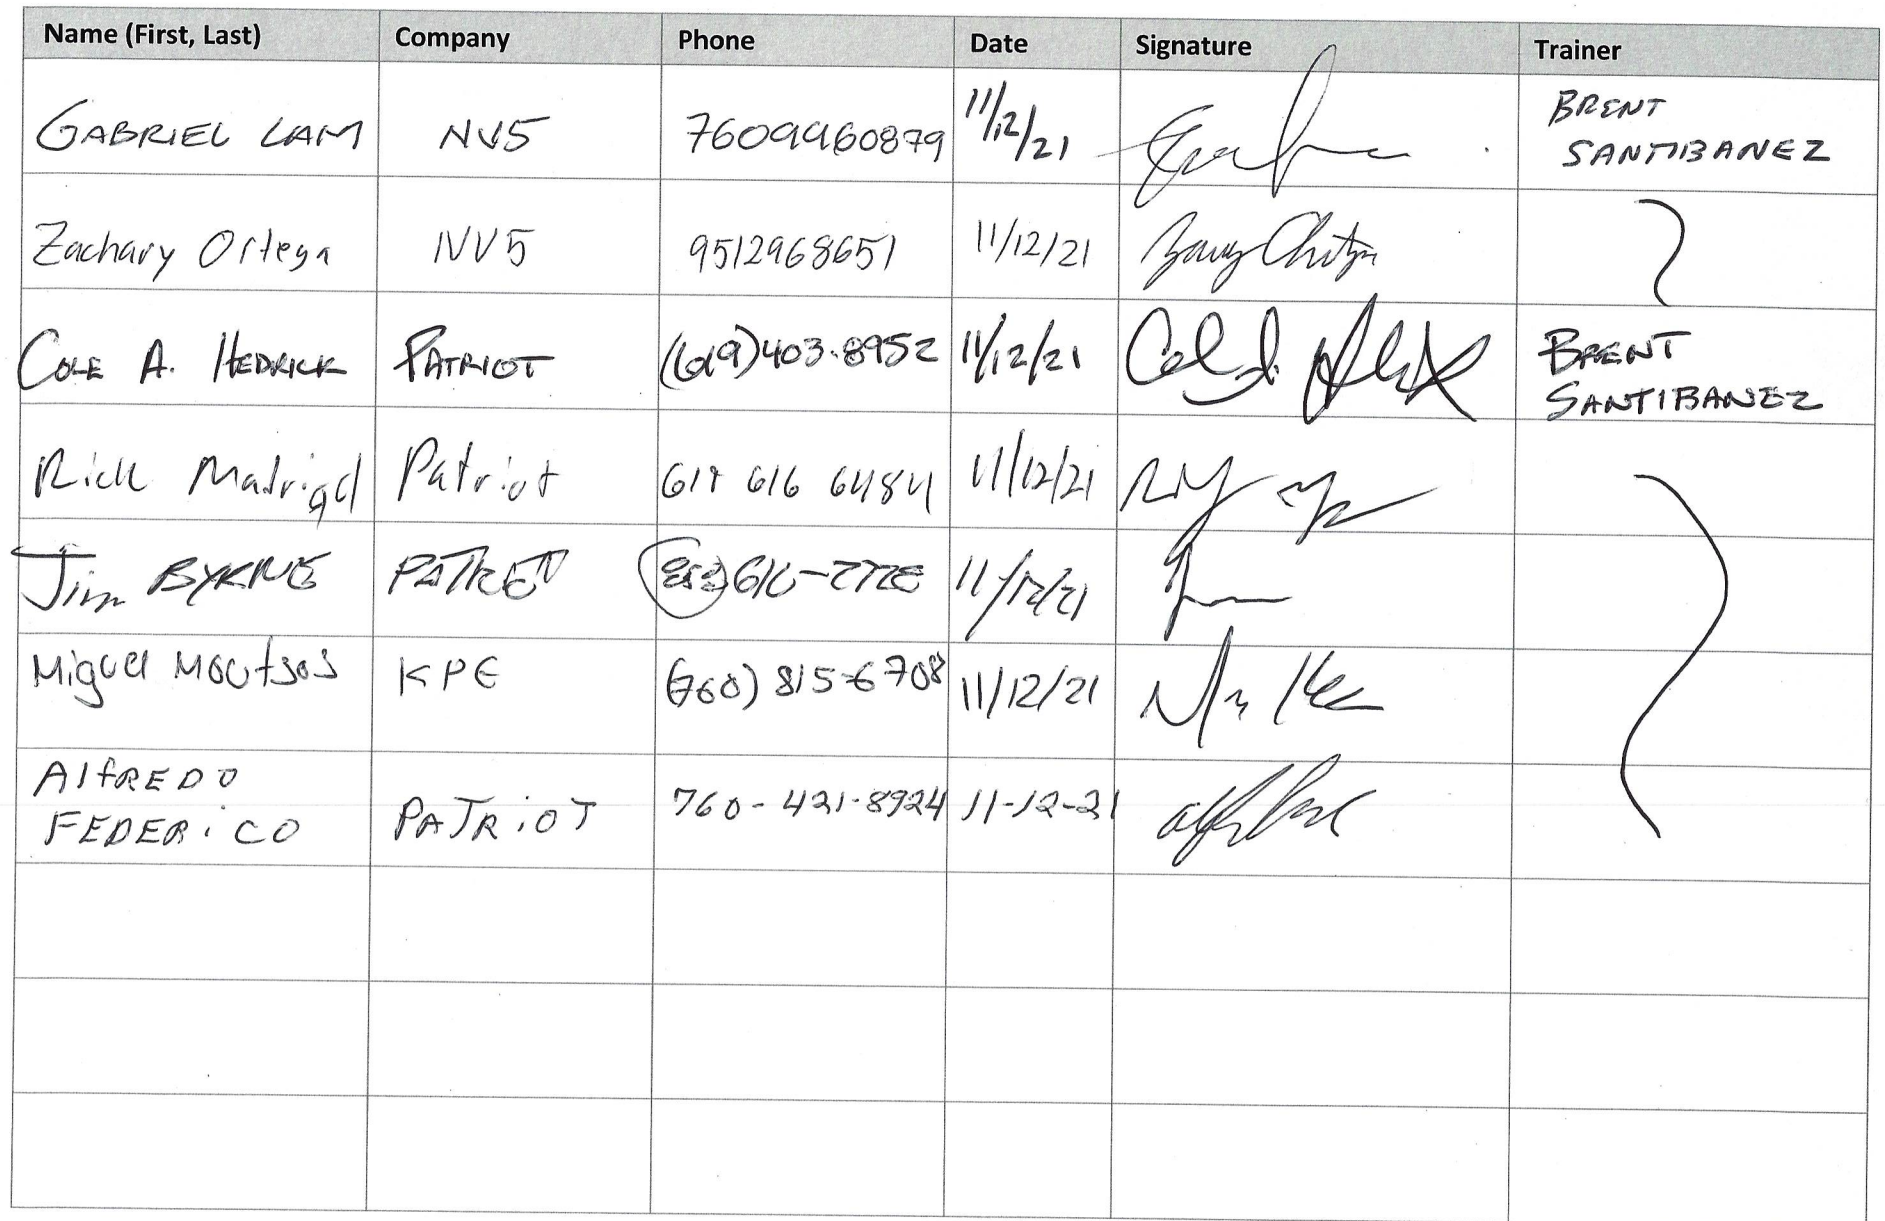 Name (First, Last) Company Phone Date Signature Trainer
GABRIEL LAM NV5 7609960879 11/12/21 BRENT
SANTIBANEZ
Zachary Ortega NV5 9512968651 11/12/21
COLE A. HEDRICK PATRIOT (619)403-8952 11/12/21 BRENT
SANTIBANEZ
Rick Madrigal Patriot 619 616 6484 11/12/21
Jim BYRNE 11/12/21
Miguel Moutsos KPE (760) 815-6708 11/12/21
AlfREDO
FEDERiCO PATRiOT 760-421-8924 11-12-21